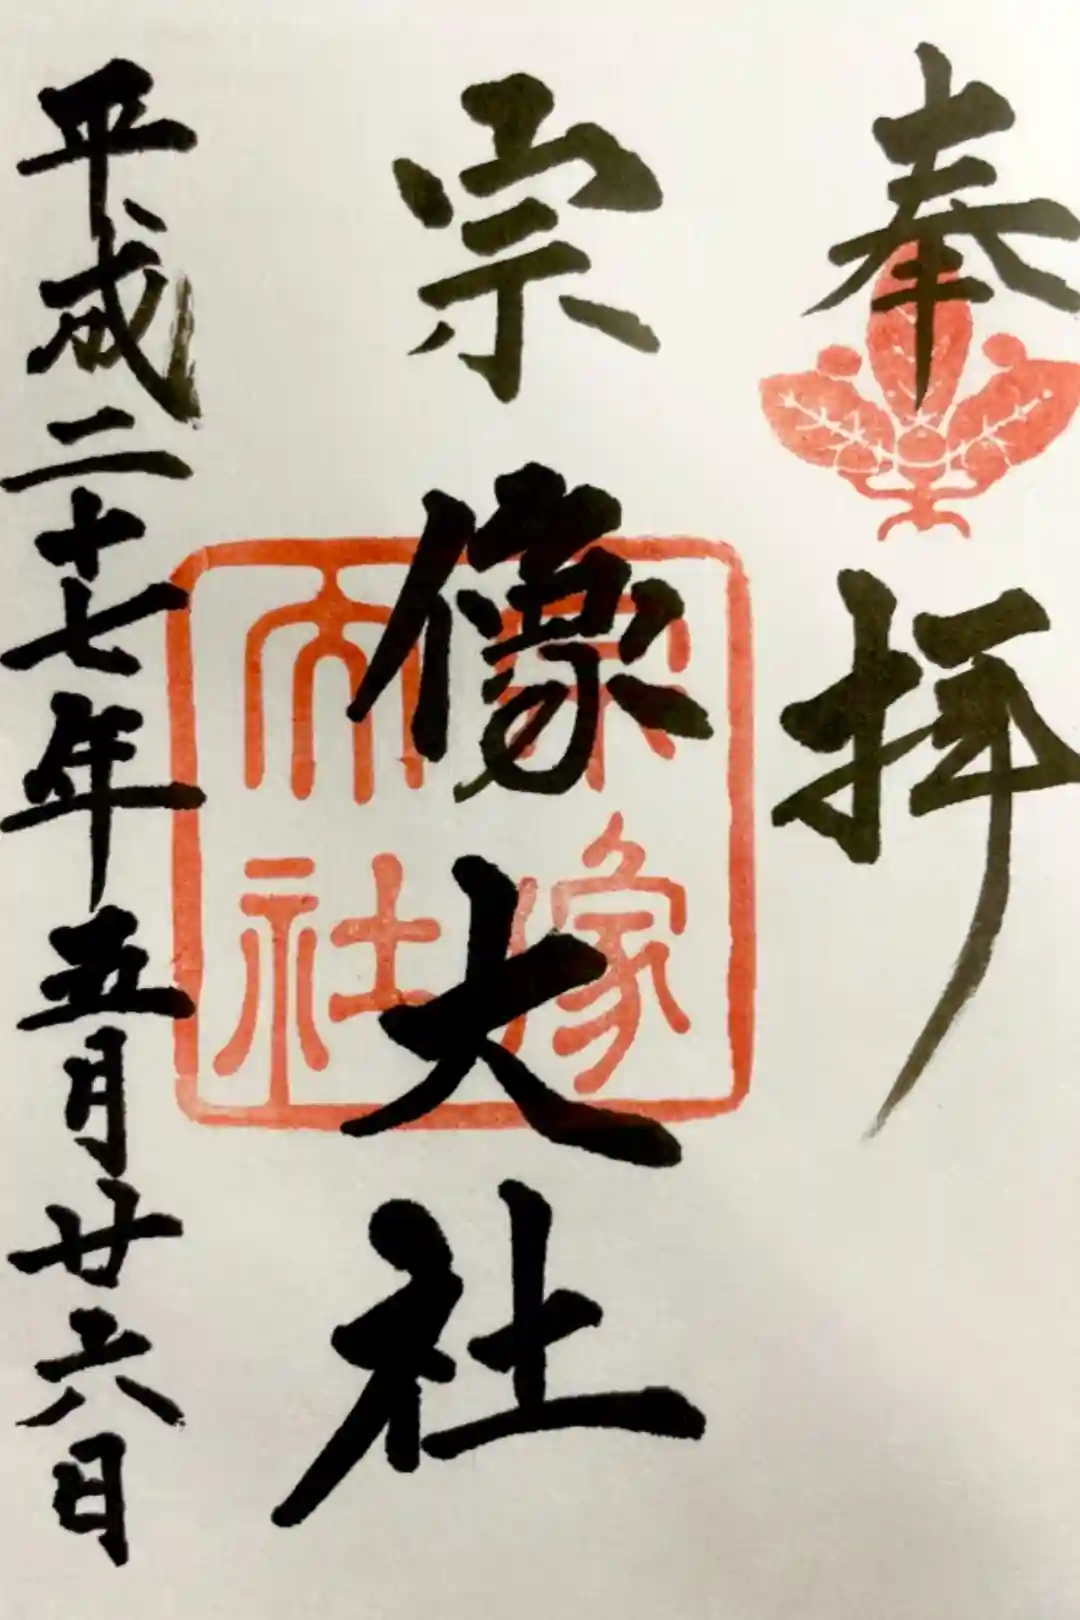 奉拝
宗像大社
宗像
大社
平成二十七年五月廿六日